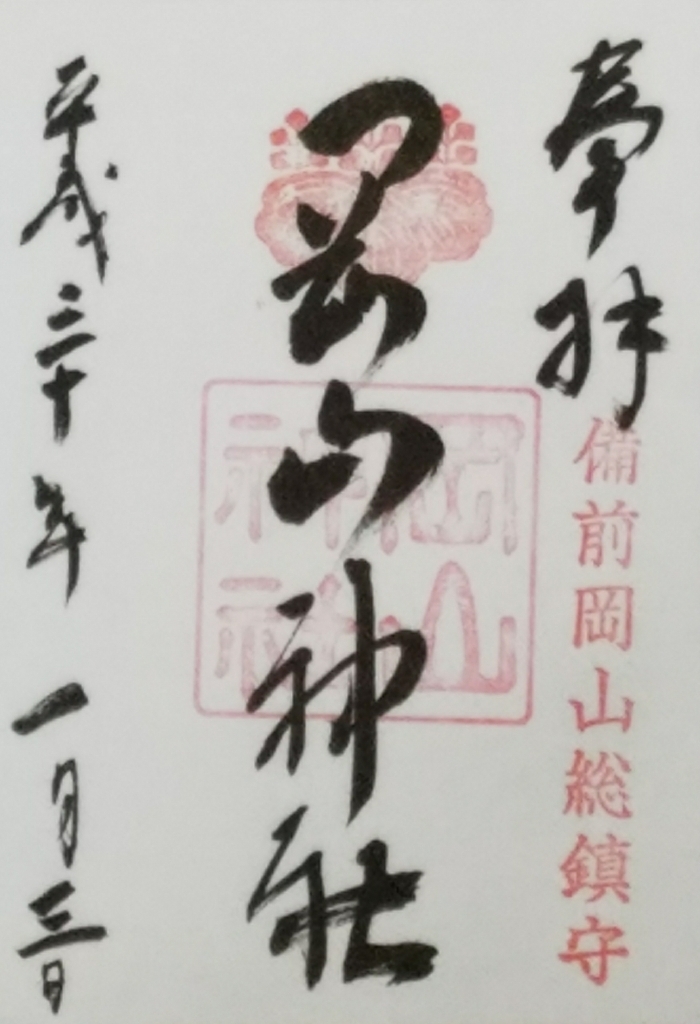 奉拝
備前岡山総鎮守
岡山神社
岡山神社
平成三十年一月三日